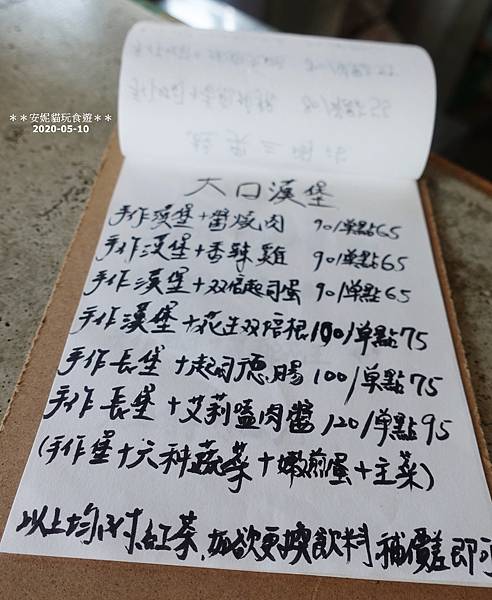 ＊＊安妮貓玩食遊＊＊
2020-05-10
大口漢堡
手作漢堡+醬燒肉 90/單點65
手作漢堡+香辣雞 90/單點65
手作漢堡+双倍起司蛋 90/單點65
手作漢堡+花生双培根100/單點75
手作長堡+起司德腸 100/單點75
手作長堡+艾莉嗑肉醬 120/單點95
(手作堡+六种蔬菜+嫩煎蛋+主菜)
以上均附紅茶,如欲更換飲料補價差即可